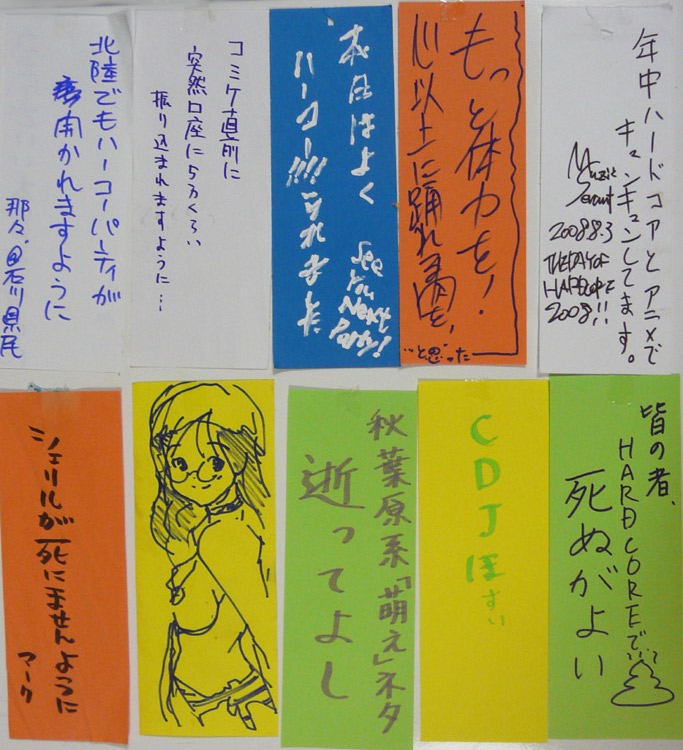 北陸でもハーコーパーティが
開かれますように
那々.@石川県民
コミケ直前に
突然口座に5万くらい
振り込まれますように…
本日はよく
ハーコー!!!られました
See
You
Next
Party!
もっと体力を!
心以上に踊れる
…と思った
年中ハードコアとアニメで
キュンキュンしてます。
Muzik
Servant
2008.8.3
THE DAY OF
HARDCORE
2008!!
シェリルが死にませんように
マーク
秋葉原系「萌え」ネタ
逝ってよし
CDJほすぃ
皆の者、
HARDCOREで…
死ぬがよい